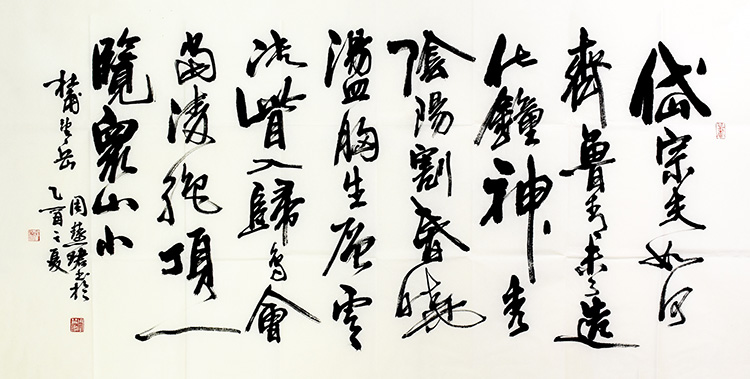 岱宗夫如何
齊魯青未了造
化鐘神秀
陰陽割昏曉
盪胸生层雲
決眥入歸鳥會
當凌絕頂一
覽眾山小
杜甫望岳
周書於
乙酉之夏